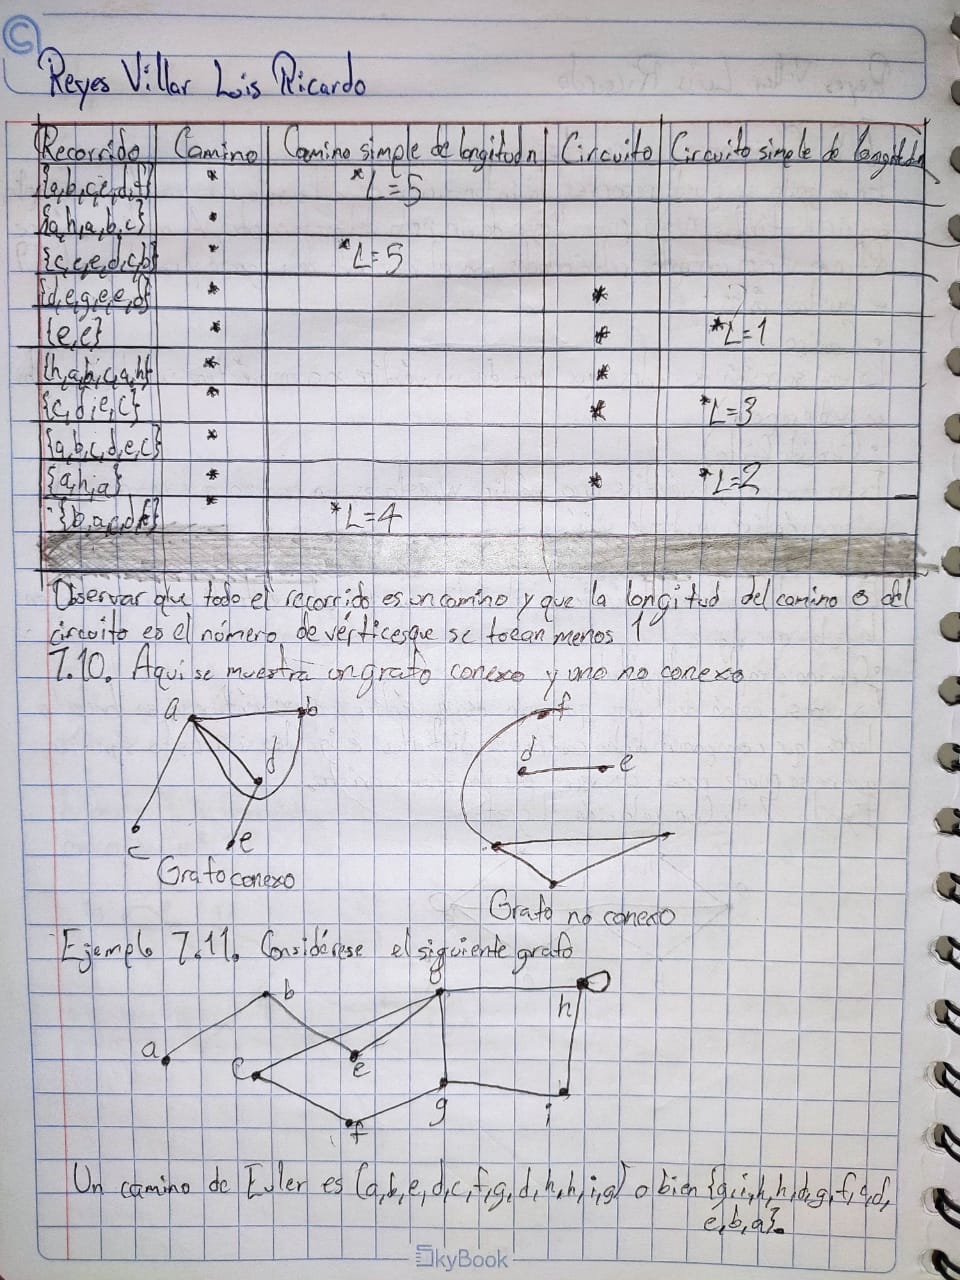 Reyes Villar Luis Ricardo
Recorrido Camino Camino simple de longitudn Circuito Circuito simple de longitudn
{a,b,c,e,d,f} * *L=5
{a,h,a,b,c} *
{c,e,e,d,c,b} * *L=5
{d,e,g,e,e,d} * *
{e,e} * * *L=1
{h,a,b,c,a,h} * *
{c,d,e,c} * * *L=3
{a,b,c,d,e,c} *
{a,h,a} * * *L=2
{b,a,c,d,f} * *L=4
Observar que todo el recorrido es un camino y que la longitud del camino o del
circuito es el número de vérticesque se tocan menos 1
7.10. Aqui se muestra un grafo conexo y uno no conexo
a b f
d d e
c e
Grafo conexo
Grafo no conexo
Ejemplo 7.11. Considérese el siguiente grafo
b h
a c e
f g i
Un camino de Euler es (a,b,e,d,c,f,g,d,h,h,i,g) o bien {g,i,h,h,d,g,f,c,d,
e,b,a}.
SkyBook